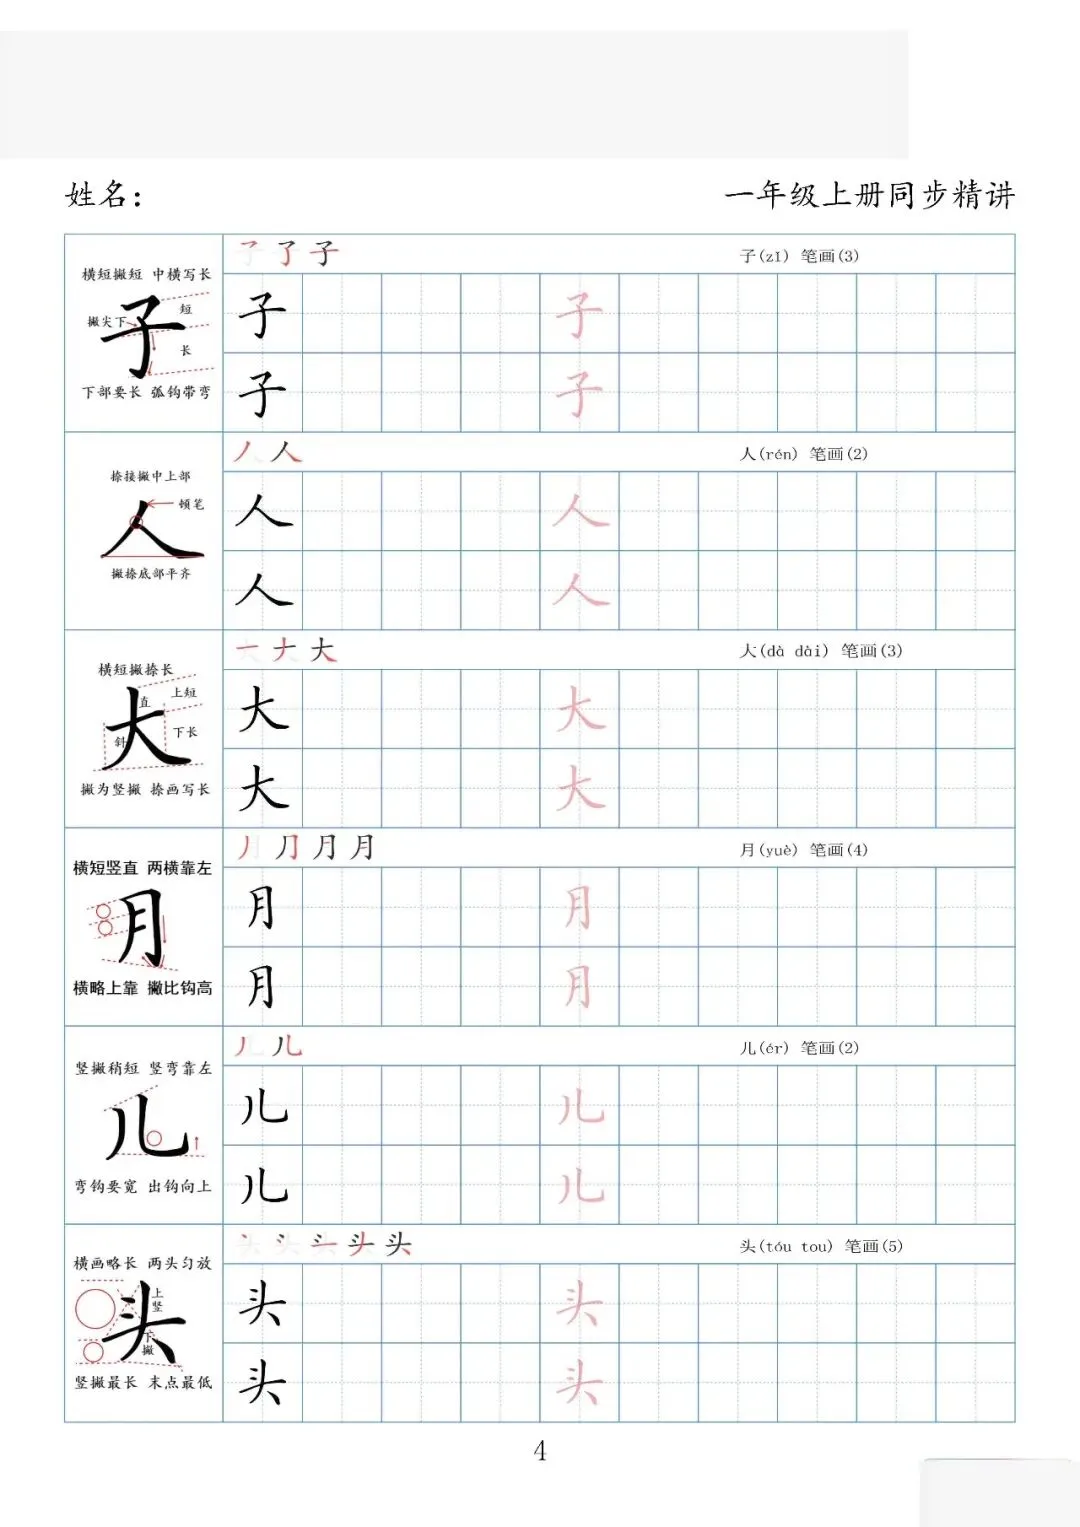 姓名：
一年级上册同步精讲
子 了 子
子(zǐ) 笔画(3)
横短撇短 中横写长
子
短
撇尖下
长
下部要长 弧钩带弯
子 子
子 子
丿 人
人(rén) 笔画(2)
捺接撇中上部
顿笔
人
撇捺底部平齐
人 人
人 人
一 ナ 大
大(dà dài) 笔画(3)
横短撇捺长
上短
直
大
下长
斜
撇为竖撇 捺画写长
大 大
大 大
丿 ⺆ 月 月
月(yuè) 笔画(4)
横短竖直 两横靠左
月
横略上靠 撇比钩高
月 月
月 月
丿 儿
儿(ér) 笔画(2)
竖撇稍短 竖弯靠左
儿
弯钩要宽 出钩向上
儿 儿
儿 儿
头 头 头 头 头
头(tóu tou) 笔画(5)
横画略长 两头匀放
上竖
头
下撇
竖撇最长 末点最低
头 头
头 头
4